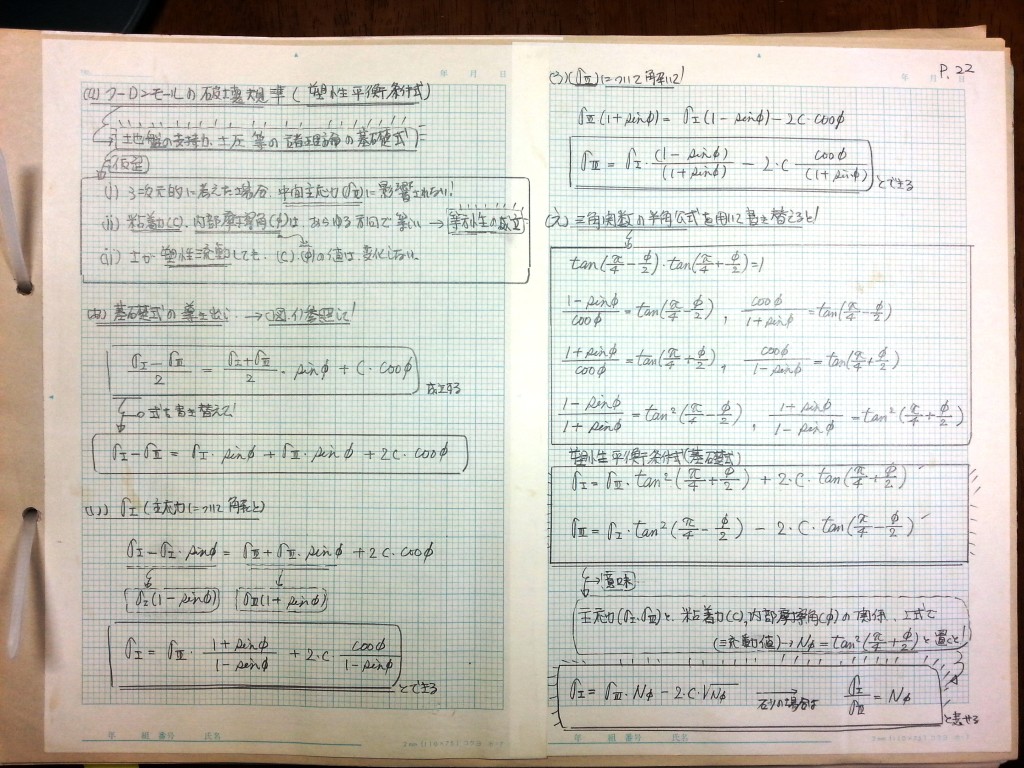 クーロン・モールの破壊規準(塑性平衡条件式)
(土地盤の支持力、土圧等の諸理論の基礎式)
仮定
(i) 3次元的に考えた場合、中間主応力(σⅡ)に影響されない!
(ii) 粘着力(C)、内部摩擦角(φ)は、あらゆる方向で等しい → 等方性の成立
(iii) 土が塑性流動しても、(C)、(φ)の値は変化しない。
基礎式の導き出し → (図.1)参照して!
(σI − σⅢ)/2 = (σI + σⅢ)/2 · sinφ + C · cosφ 成立する
式を書き替えて!
σI − σⅢ = σI · sinφ + σⅢ · sinφ + 2C · cosφ
σI (主応力について解くと)
σI − σI · sinφ = σⅢ + σⅢ · sinφ + 2C · cosφ
σI(1 − sinφ) σⅢ(1 + sinφ)
σI = σⅢ · (1 + sinφ)/(1 − sinφ) + 2·C · cosφ/(1 − sinφ) とできる
年 組 番号 氏名
年 月 日
P.22
(σⅢ)について解いて!
σⅢ(1 + sinφ) = σI(1 − sinφ) − 2·C · cosφ
σⅢ = σI · (1 − sinφ)/(1 + sinφ) − 2·C · cosφ/(1 + sinφ) とできる
三角関数の半角公式を用いて書き替えると!
tan(π/4 − φ/2) · tan(π/4 + φ/2) = 1
(1 − sinφ)/cosφ = tan(π/4 − φ/2) , cosφ/(1 + sinφ) = tan(π/4 − φ/2)
(1 + sinφ)/cosφ = tan(π/4 + φ/2) , cosφ/(1 − sinφ) = tan(π/4 + φ/2)
(1 − sinφ)/(1 + sinφ) = tan²(π/4 − φ/2) , (1 + sinφ)/(1 − sinφ) = tan²(π/4 + φ/2)
塑性平衡条件式(基礎式)
σI = σⅢ · tan²(π/4 + φ/2) + 2·C · tan(π/4 + φ/2)
σⅢ = σI · tan²(π/4 − φ/2) − 2·C · tan(π/4 − φ/2)
→ 意味
主応力(σI、σⅢ)と、粘着力(C)、内部摩擦角(φ)の関係、上式で
(=流動値) → Nφ = tan²(π/4 + φ/2)と置くと!
σI = σⅢ · Nφ − 2·C · √Nφ → 砂の場合は σI/σⅢ = Nφ と表せる
年 組 番号 氏名